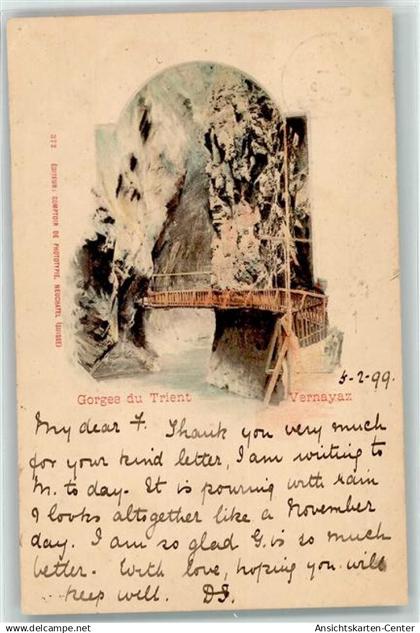 372 ÉDITEUR: COMPTOIR DE PHOTOTYPIE, NEUCHATEL (SUISSE)
Gorges du Trient
Vernayaz
5-2-99.
My dear F. Thank you very much
for your kind letter, I am writing to
M. to day. It is pouring with rain
& looks altogether like a November
day. I am so glad G. is so much
better. With love, hoping you will
keep well. D.J.
Ansichtskarten-Center